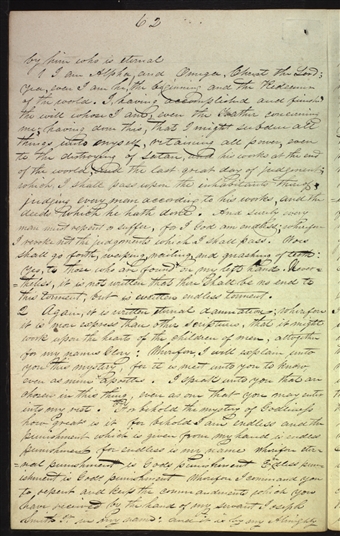 62
by him who is eternal
1 I am Alpha, and Omega, Christ the Lord;
Yea, even I am he, the beginning and the Redeemer
of the world. I, having accomplished and finished
the will of whose I am, even the Father concerning
me; having done this, that I might subdue all
things unto myself, retaining all power, even
to the destroying of Satan, and his works at the end
of the world, and the last great day of judgment,
which I shall pass upon the inhabitants thereof,
judging every man according to his works, and the
deeds which he hath done. And surely every
man must repent or suffer, for I God am endless; wherefore
I revoke not the judgments which I shall pass. Woes
shall go forth, weeping, wailing and gnashing of teeth:
Yea, to those who are found on my left hand. Never-
theless, it is not written that there shall be no end to
this torment, but is written endless torment.
2 Again, it is written eternal damnation; wherefore
it is more express than other scriptures, that it might
work upon the hearts of the children of men, altogether
for my names Glory: Wherefore, I will explain unto
you this mystery, for it is meet unto you to know,
even as mine Apostles. I speak unto you that are
chosen in this thing, even as one that you may enter
into my rest. For behold the mystery of Godliness
how great is it for behold I am endless and the
punishment which is given from my hand is endless
punishment for endless is my name Wherefore eter-
nal punishment is Gods punishment Endless pun-
ishment is Gods punishment Wherefore I command you
to repent and keep the commandments which you
have received by the hand of my servant Joseph
Smith Jr. in my name: and it is by my Almighty